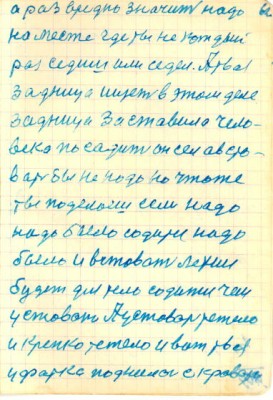 а раз вредно значит надо
на месте где ты не каждый
раз седиш или седел. А твоя
задница имеет в этом деле
задница заставила чело-
века посадит он сел а вста-
ват бы не надо но что же
ты поделаеш если надо
надо было содить надо
было и встават легчи
будет для тело содит чем
у ставать А устават тетело
и крепко тетело и ват твоя
поднилас с кравати